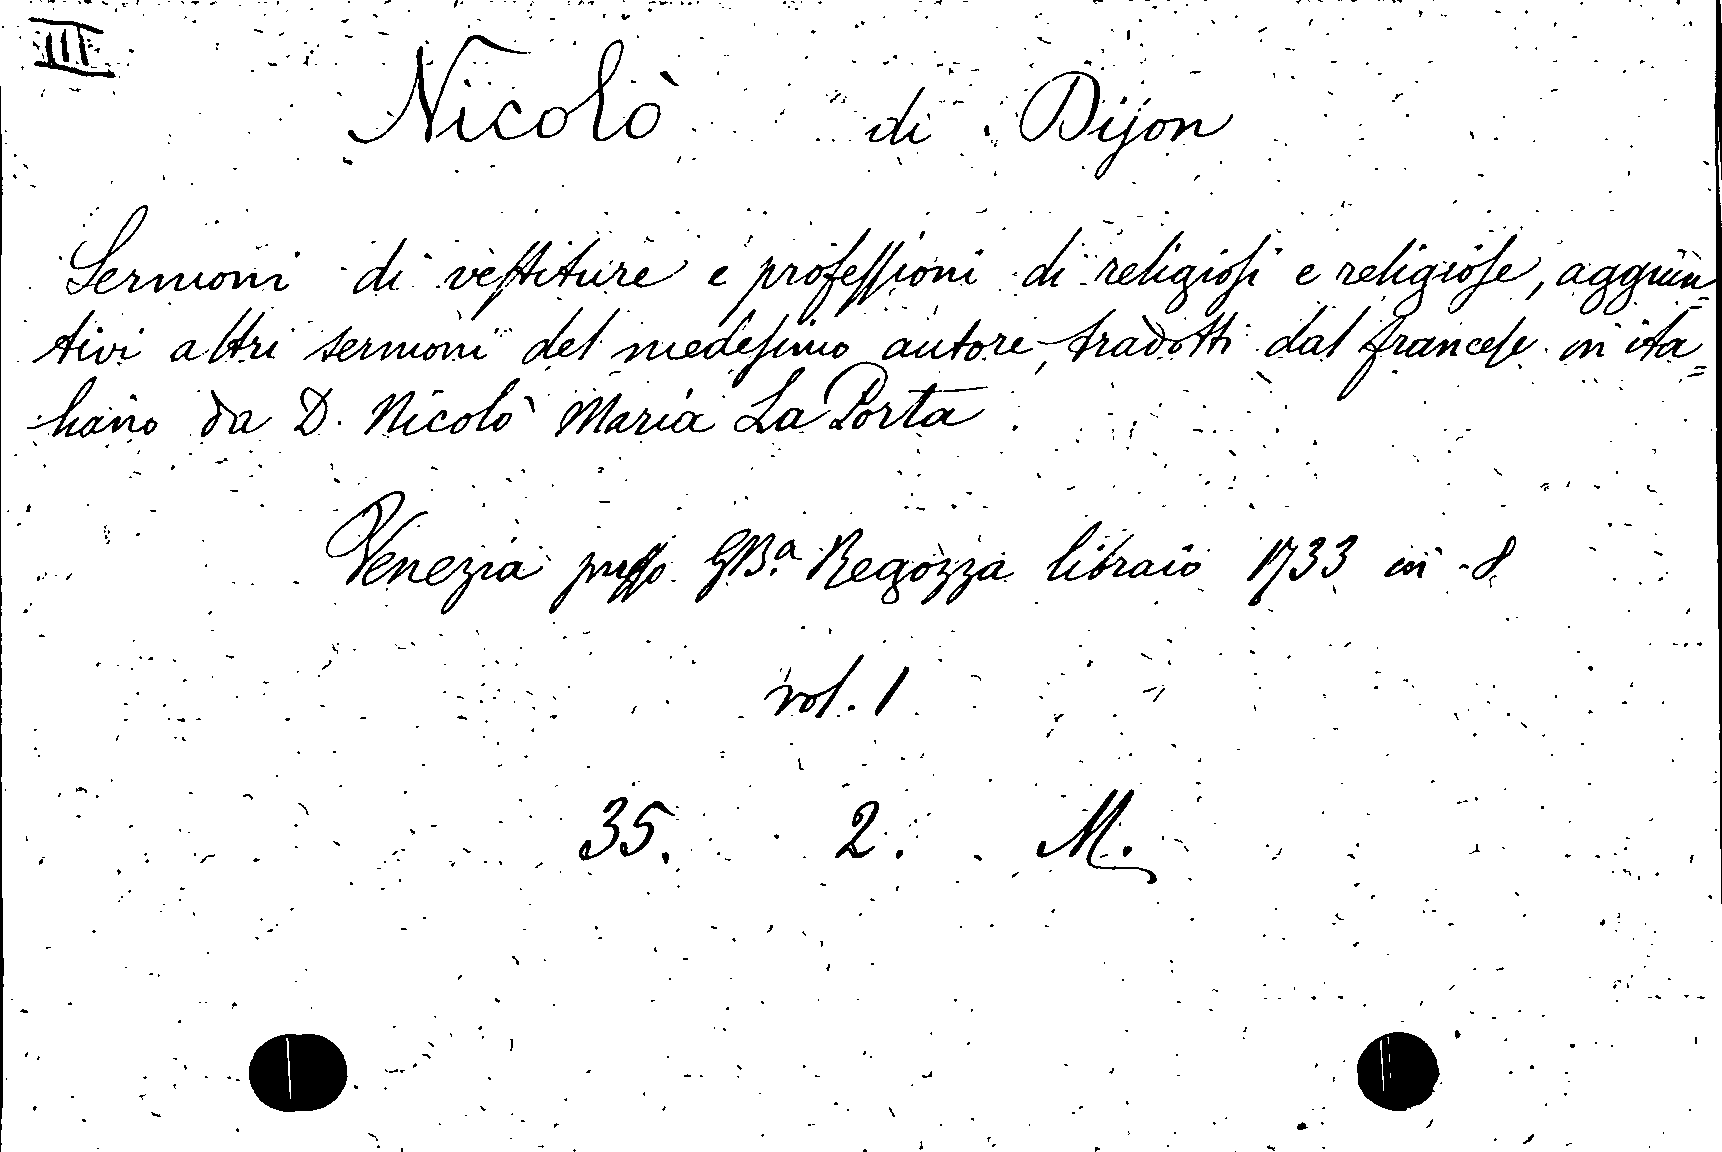 III
Nicolò di Dijon
Sermoni di vestiture e professioni di religiosi e religiose, aggiun=
tivi altri sermoni del medesimo autore, tradotti dal francese in ita=
liano da D. Nicolò Maria La Porta.
Venezia presso GB.a Regozza libraio 1733 in-8.
vol. 1
35. 2. M.